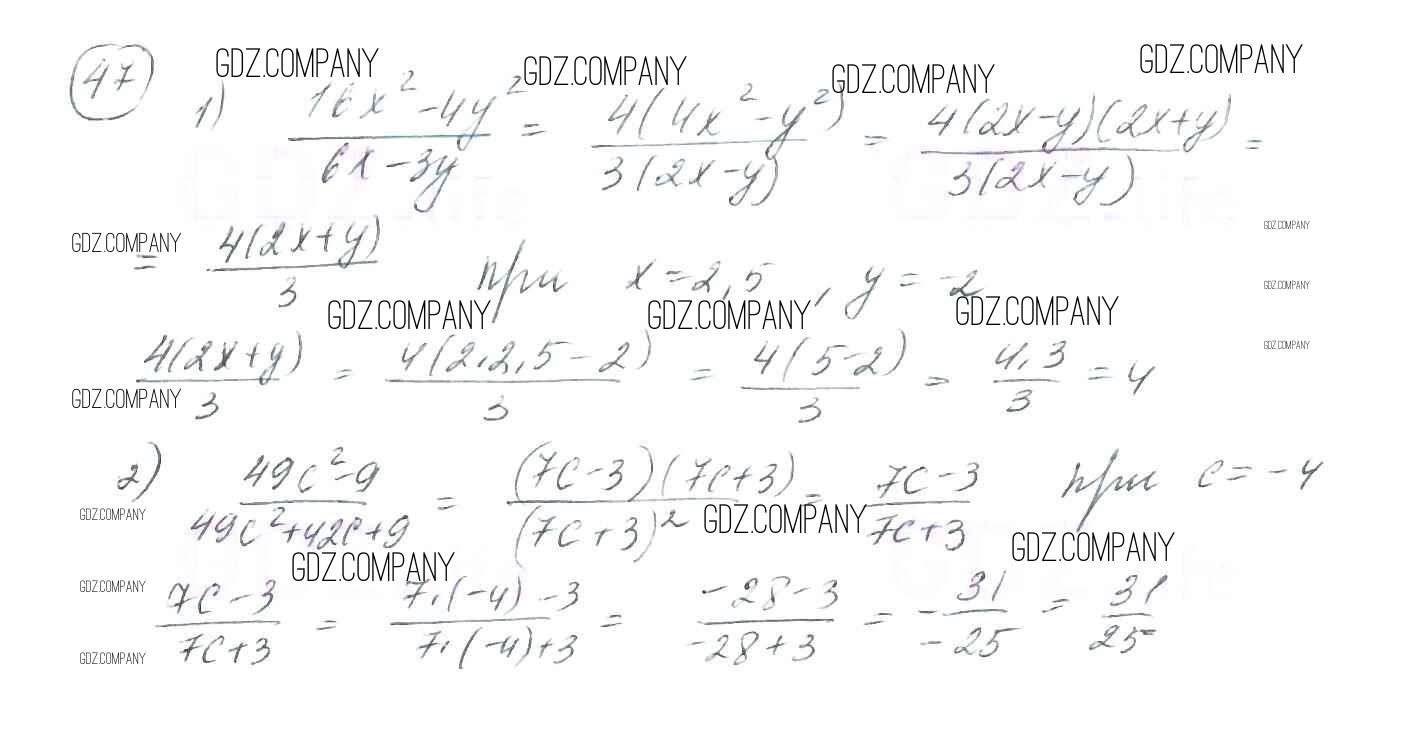 47
GDZ.COMPANY GDZ.COMPANY GDZ.COMPANY GDZ.COMPANY
1) (16x² - 4y²)/(6x - 3y) = 4(4x² - y²)/3(2x - y) = 4(2x - y)(2x + y)/3(2x - y) =
GDZ.COMPANY
GDZ.COMPANY
= 4(2x + y)/3 при x = 2,5, y = -2
GDZ.COMPANY
GDZ.COMPANY GDZ.COMPANY GDZ.COMPANY
GDZ.COMPANY
4(2x + y)/3 = 4(2·2,5 - 2)/3 = 4(5 - 2)/3 = 4·3/3 = 4
GDZ.COMPANY
2) (49c² - 9)/(49c² + 42c + 9) = (7c - 3)(7c + 3)/(7c + 3)² = (7c - 3)/(7c + 3) при c = -4
GDZ.COMPANY GDZ.COMPANY
GDZ.COMPANY GDZ.COMPANY
GDZ.COMPANY
(7c - 3)/(7c + 3) = (7·(-4) - 3)/(7·(-4) + 3) = (-28 - 3)/(-28 + 3) = -31/-25 = 31/25
GDZ.COMPANY